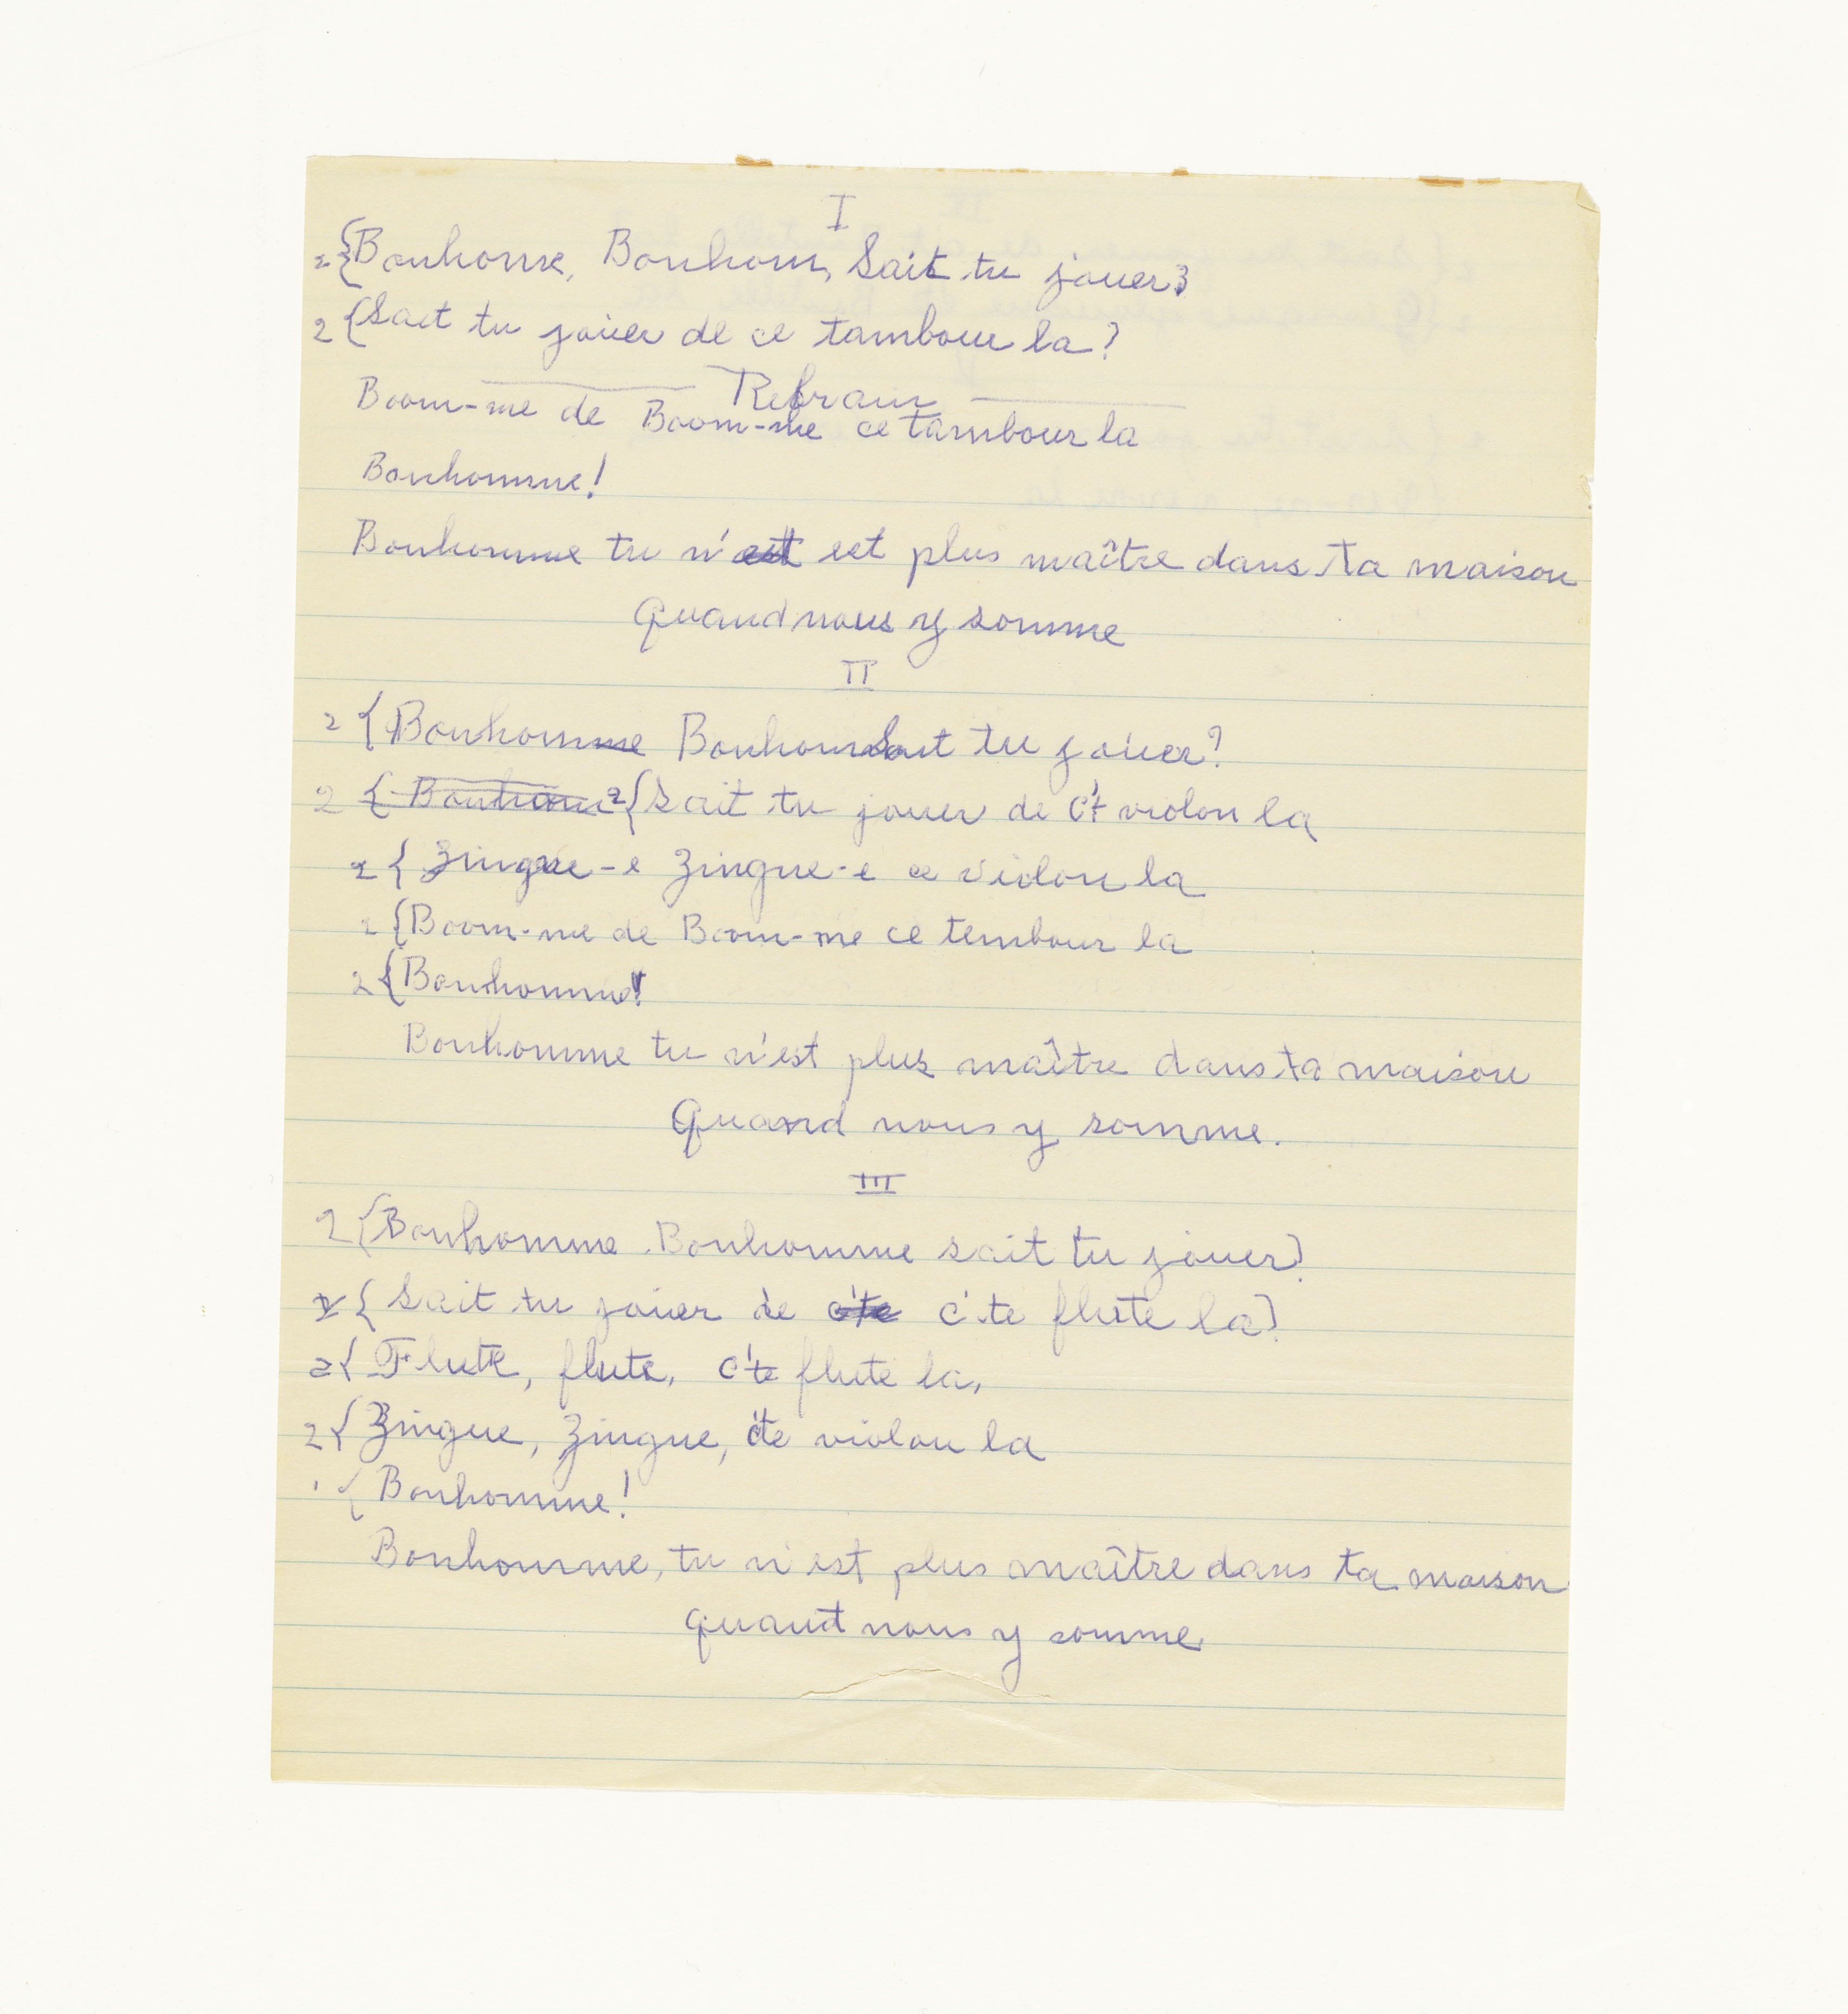 I
2 { Bonhomme, Bonhom, Sait tu jouer?
2 { Sait tu jouer de ce tambour la?
Refrain
Boom-me de Boom-me ce tambour la
Bonhomme!
Bonhomme tu n'est est plus maître dans ta maison
Quand nous y somme
II
2 { Bonhomme Bonhom Sait tu jouer?
2 { Bonhom 2 { Sait tu jouer de c't violon la
2 { Zingue-e Zingue-e ce violon la
2 { Boom-me de Boom-me ce tembour la
2 { Bonhomme!
Bonhomme tu n'est plus maître dans ta maison
Quand nous y somme.
III
2 { Bonhomme Bonhomme sait tu jouer?
2 { Sait tu jouer de c'te c'te flute la?
2 { Flute, flute, c'te flute la,
2 { Zingue, Zingue, c'te violon la
{ Bonhomme!
Bonhomme, tu n'est plus maître dans ta maison
quant nous y somme